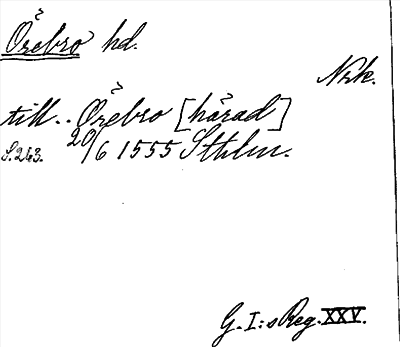 Örebro hd.
Nrk.
till.. Örebro [härad]
S. 263. 20/6 1555 Sthlm.
G. I:s Reg. XXV.